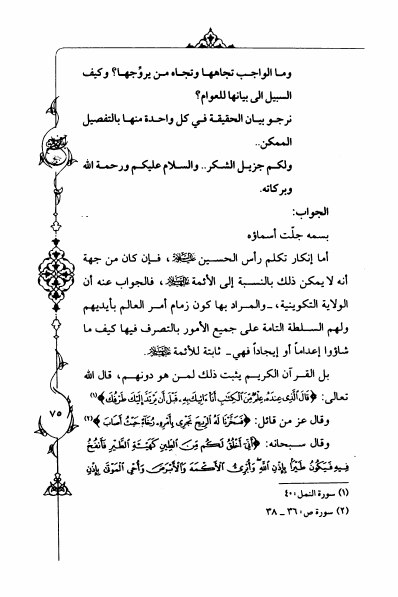 وما الواجب تجاهها وتجاه من يروّجها؟ وكيف
السبيل الى بيانها للعوام؟
نرجو بيان الحقيقة في كل واحدة منها بالتفصيل
الممكن..
ولكم جزيل الشكر.. والسلام عليكم ورحمة الله
وبركاته.
الجواب:
بسمه جلّت أسماؤه
أما إنكار تكلم رأس الحسين، فإن كان من جهة
أنه لا يمكن ذلك بالنسبة إلى الأئمة، فالجواب عنه أن
الولاية التكوينية، ـ والمراد بها كون زمام أمر العالم بأيديهم
ولهم السلطة التامة على جميع الأمور بالتصرف فيها كيف ما
شاؤوا إعداماً أو إيجاداً فهي ـ ثابتة للأئمة.
بل القرآن الكريم يثبت ذلك لمن هو دونهم، قال الله
تعالى: ﴿قَالَ الَّذِي عِندَهُ عِلْمٌ مِّنَ الْكِتَابِ أَنَا آتِيكَ بِهِ قَبْلَ أَن يَرْتَدَّ إِلَيْكَ طَرْفُكَ﴾(١)
وقال عز من قائل: ﴿فَسَخَّرْنَا لَهُ الرِّيحَ تَجْرِي بِأَمْرِهِ رُخَاءً حَيْثُ أَصَابَ﴾(٢)
وقال سبحانه: ﴿أَنِّي أَخْلُقُ لَكُم مِّنَ الطِّينِ كَهَيْئَةِ الطَّيْرِ فَأَنفُخُ
فِيهِ فَيَكُونُ طَيْرًا بِإِذْنِ اللَّهِ وَأُبْرِئُ الْأَكْمَهَ وَالْأَبْرَصَ وَأُحْيِي الْمَوْتَىٰ بِإِذْنِ
(١) سورة النمل: ٤٠
(٢) سورة ص: ٣٦ ـ ٣٨
٧٥